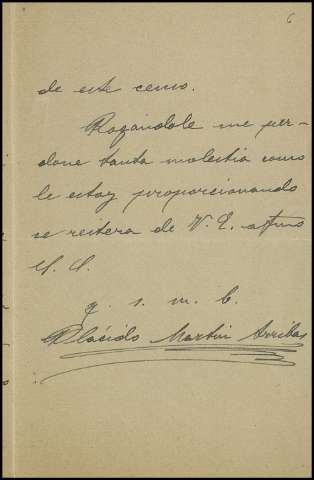 6
de este censo.
Rogandole me per-
done tanta molestia como
le estoy proporcionando
se reitera de V. E. attmo
S. S.
q. s. m. b.
Plácido Martin Arribas